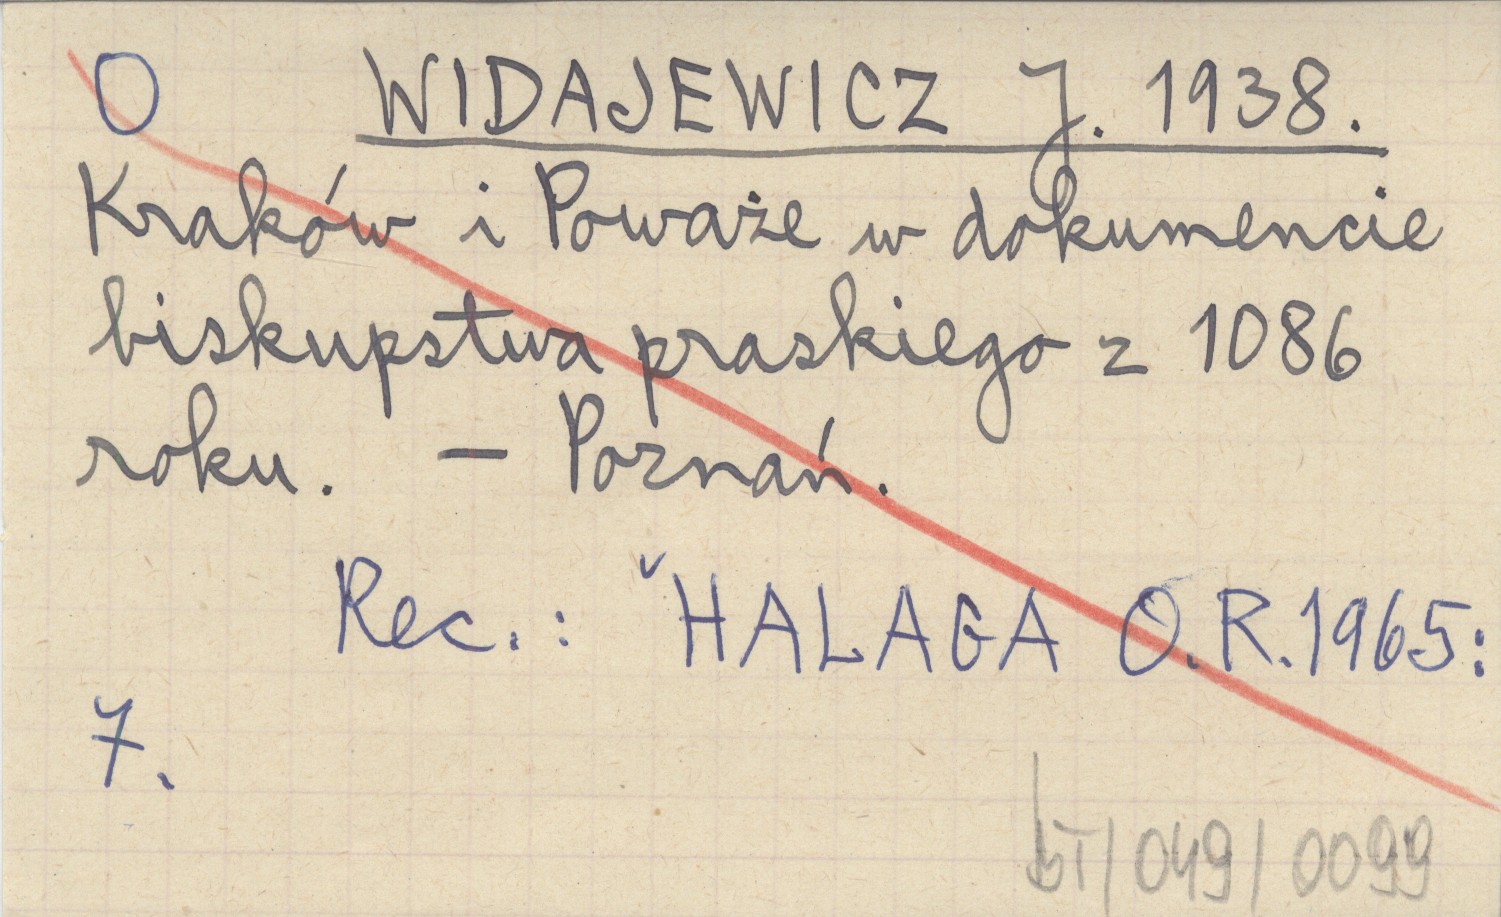 O WIDAJEWICZ J. 1938.
Kraków i Poważe w dokumencie
biskupstwa praskiego z 1086
roku. – Poznań.
Rec.: ˇHALAGA O.R. 1965:
7.
/049/0099